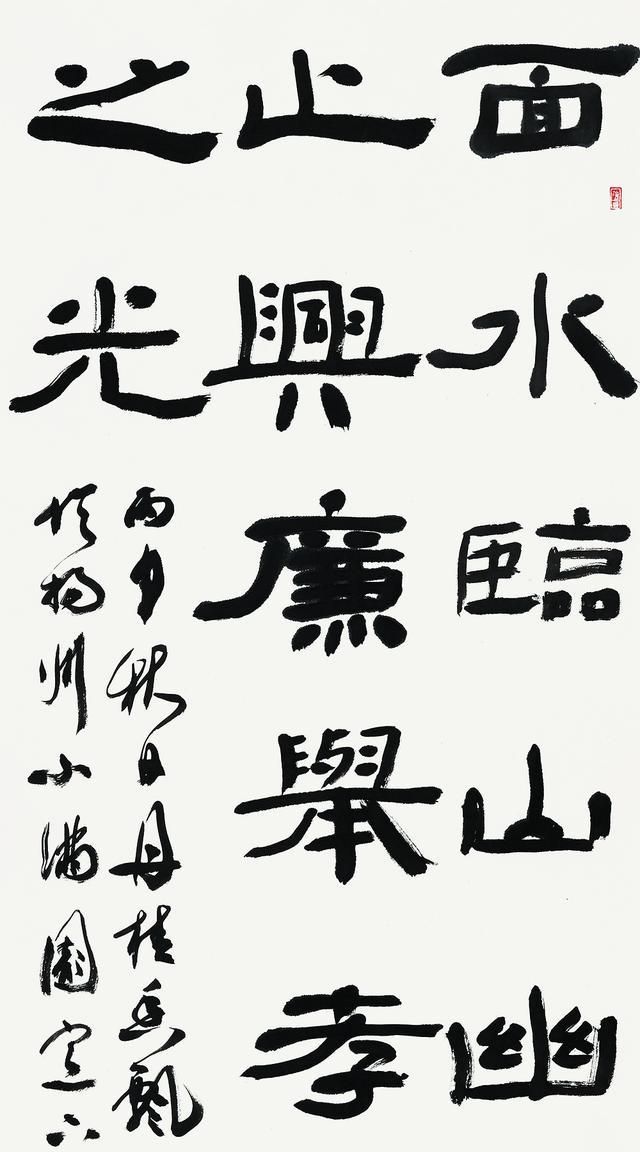 面水臨山幽
止興廉舉孝
之光
丙申秋日丹桂香飄
於揚州小滿園窗下